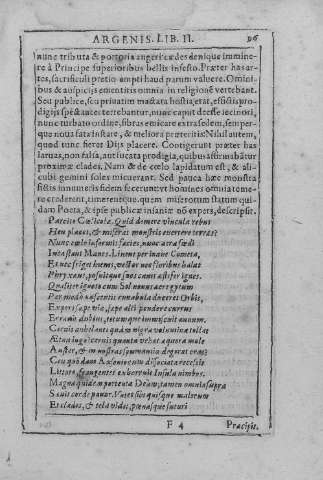 ARGENIS. LIB. II. 96
nunc tributa & portoria augeri: cædes denique imminere
à Principe superioribus bellis infesto. Præter has artes,
sacrificuli pretio empti haud parum valuere. Ominibus
& auspiciis ementitis omnia in religionē vertebant.
Seu publice, seu privatim mactata hostia, erat, ...
digiis spectantes terrebantur, nunc caput deesse iecinori,
nunc turbato ordine, fibras emicare extra sedem, semperque
nova fata instare, & meliora præteritis: Nihil autem,
quod tunc fieret Diis placere. Contigerunt præter has
larvas, non falsa, aut fucata prodigia, quibus affirmabātur
proximæ clades. Nam & de cœlo lapidatum est, & alicubi
gemini soles micuerant. Sed pauca hæc monstra
fictis innumeris fidem fecerunt: vt homines omnia temere
crederent, timerentque. quem miserorum statum quidam
Poëta, & ipse publicæ insaniæ nō expers, descripsit.
Parcite Cælicolæ. Quid demere vincula rebus
Heu placet, & miseras monstris euertere terras?
Nunc cœlo informis facies, nunc atra sœdi
Incestant Manes. Linent per inane Cometæ,
Et nec friget hiems, vector nec floribus halat
Phryxeus, positque suos annus astifer ignes.
Qualiter ignoto cum Sol nouus aere gyrum
Par modo nascentis cunabula duceret Orbis,
Expers sæpe via, sæpe alti pondere currus
Erranit dubius, totumque immiscuit annum.
Cernis anhelantes quàm nigra volumina tollat
Ætna iugis: cernis quanto vehat aequora male
Auster, & in nostras spumantia degerat oras:
Ceu quondam Ausonio cum dissociata recessit
Littore, frangentes exhorruit Insula nimbos.
Magna quidem portenta Deûm; tamen omnia supra
Sauit corde pauor. Vates sibi quisque malorum
Et clades, & tela videt, pœnasque futuri
F 4 Præcipit.